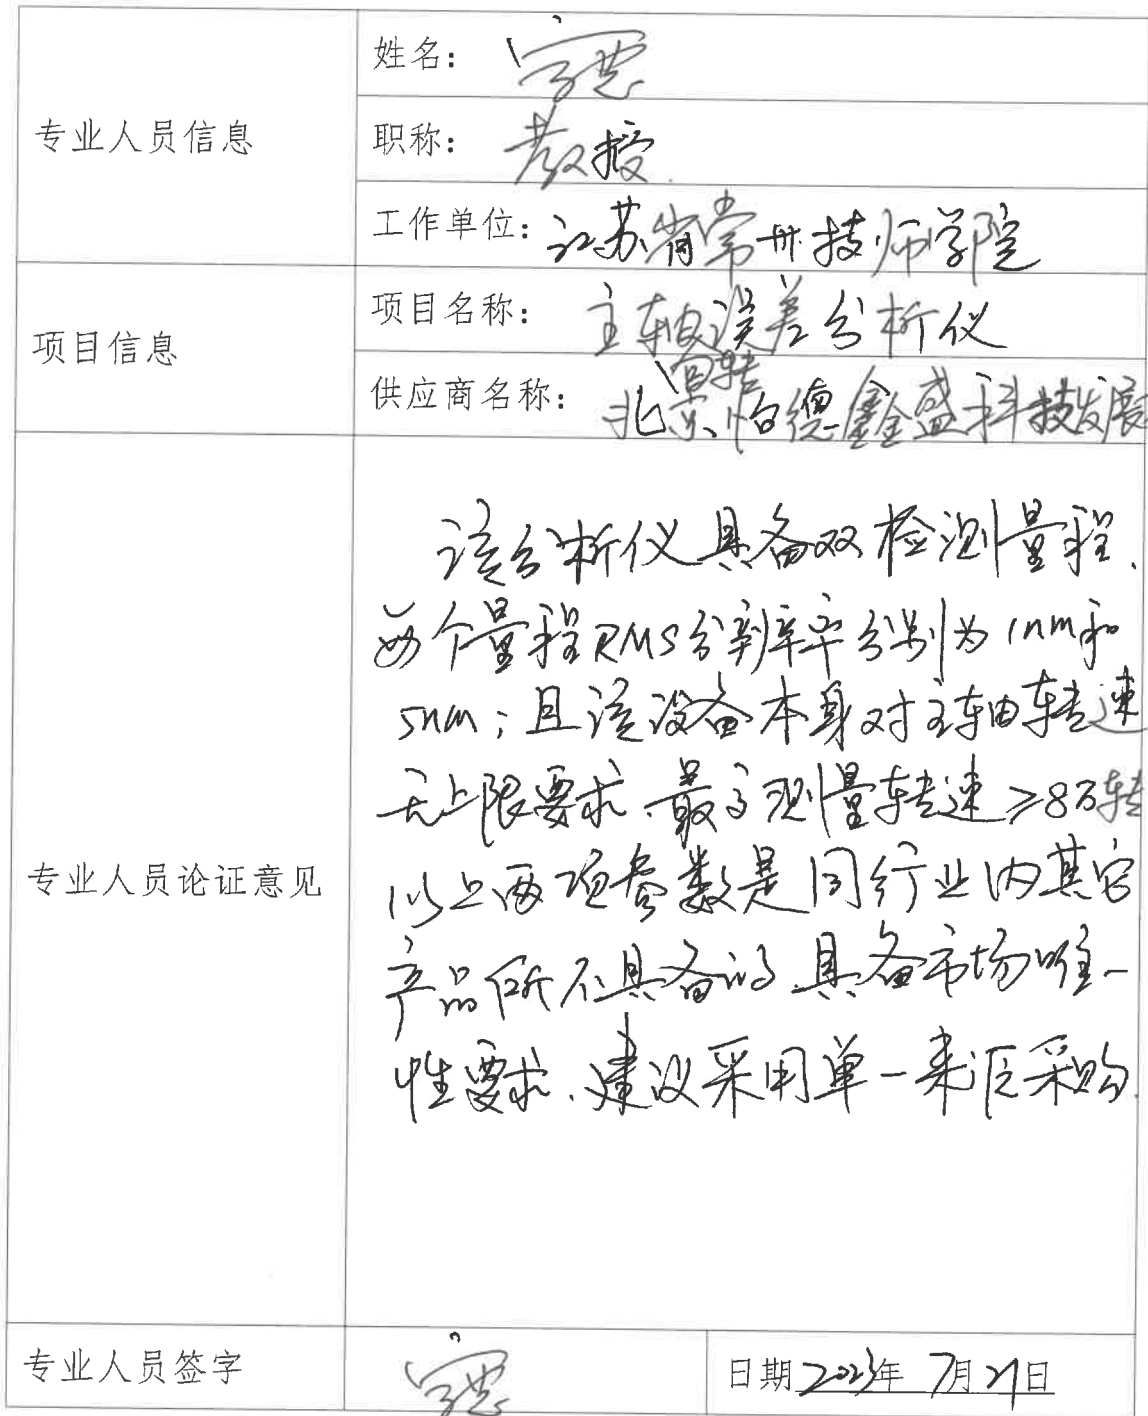 专业人员信息
姓名：
职称： 教授
工作单位：江苏省常州技师学院
项目信息
项目名称： 主轴误差分析仪
回转
供应商名称： 北京怡德鑫盛科技发展
专业人员论证意见
该分析仪具备双检测量程，
每个量程RMS分辨率分别为1nm和
5nm；且该设备本身对主轴转速
无上限要求、最高测量转速≥8万转
以上两项参数是同行业内其它
产品所不具备的，具备市场唯一
性要求，建议采用单一来源采购。
专业人员签字
日期2023年 7月21日